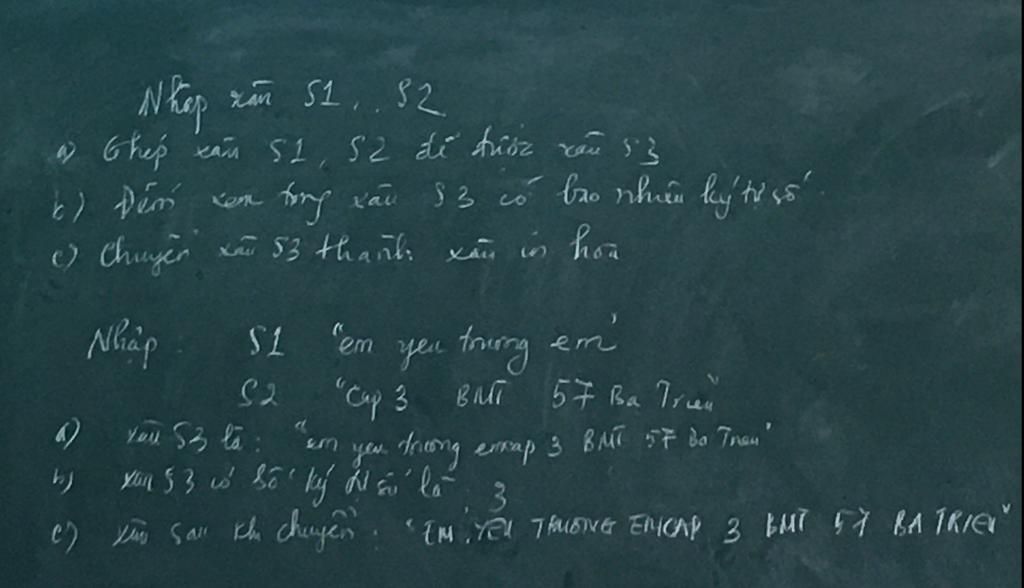 Nhập xâu S1, S2
a) Ghép xâu S1, S2 để được xâu S3
b) Đếm xem trong xâu S3 có bao nhiêu ký tự số.
c) Chuyển xâu S3 thành xâu in hoa
Nhập: S1 "em yeu truong em"
S2 "Cap 3 BMT 57 Ba Trieu"
a) xâu S3 là: "em yeu truong emcap 3 BMT 57 Ba Trieu"
b) xâu S3 có số ký tự số là: 3
c) xâu sau khi chuyển: "EM YEU TRUONG EMCAP 3 BMT 57 BA TRIEU"